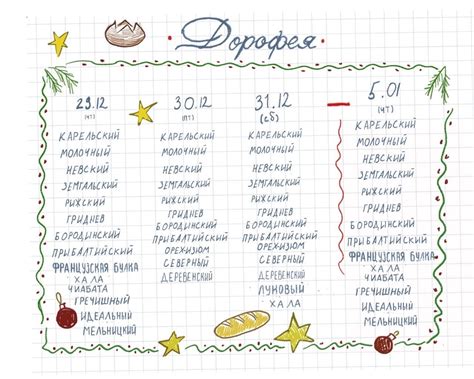 · Дорофея ·
29.12
(чт)
КАРЕЛЬСКИЙ
МОЛОЧНЫЙ
НЕВСКИЙ
ЗЕМГАЛЬСКИЙ
РИЖСКИЙ
ГРИДНЕВ
БОРОДИНСКИЙ
ПРИБАЛТИЙСКИЙ
ФРАНЦУЗСКАЯ БУЛКА
ХАЛА
ЧИАБАТА
ГРЕЧИШНЫЙ
ИДЕАЛЬНЫЙ
МЕЛЬНИЦКИЙ
30.12
(пт)
КАРЕЛЬСКИЙ
МОЛОЧНЫЙ
НЕВСКИЙ
ЗЕМГАЛЬСКИЙ
РИЖСКИЙ
ГРИДНЕВ
БОРОДИНСКИЙ
ПРИБАЛТИЙСКИЙ
ОРЕХИЗЮМ
СЕВЕРНЫЙ
ДЕРЕВЕНСКИЙ
31.12
(сб)
КАРЕЛЬСКИЙ
МОЛОЧНЫЙ
НЕВСКИЙ
ЗЕМГАЛЬСКИЙ
РИЖСКИЙ
ГРИДНЕВ
БОРОДИНСКИЙ
ПРИБАЛТИЙСКИЙ
ОРЕХИЗЮМ
СЕВЕРНЫЙ
ДЕРЕВЕНСКИЙ
ЛУКОВЫЙ
ХАЛА
5.01
(чт)
КАРЕЛЬСКИЙ
МОЛОЧНЫЙ
НЕВСКИЙ
ЗЕМГАЛЬСКИЙ
РИЖСКИЙ
ГРИДНЕВ
БОРОДИНСКИЙ
ПРИБАЛТИЙСКИЙ
ФРАНЦУЗСКАЯ БУЛКА
ХАЛА
ЧИАБАТА
ГРЕЧИШНЫЙ
ИДЕАЛЬНЫЙ
МЕЛЬНИЦКИЙ